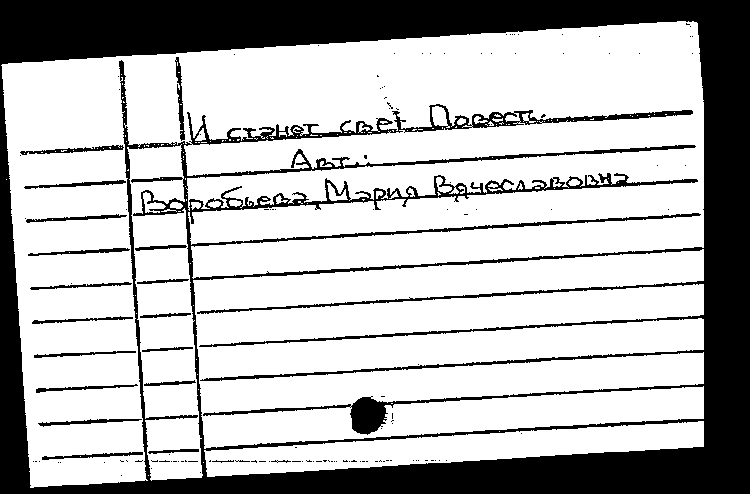 И станет свет Повесть.
Авт.:
Воробьева, Мария Вячеславовна